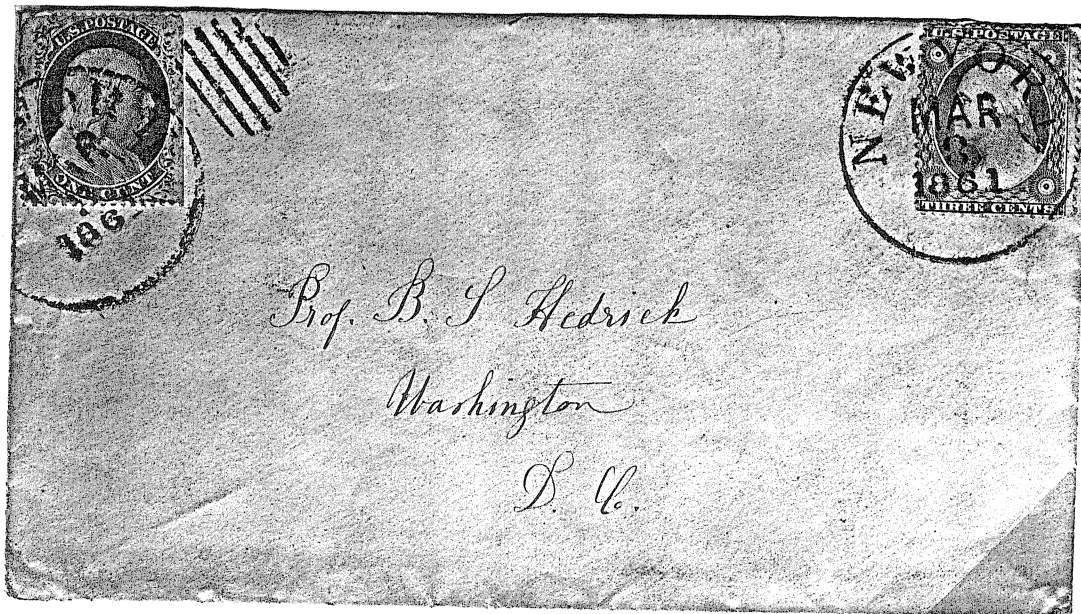 U.S. POSTAGE
ONE CENT
186
U.S. POSTAGE
THREE CENTS
NEW YORK
MAR
1861
Prof. B. S Hedrick
Washington
D. C.